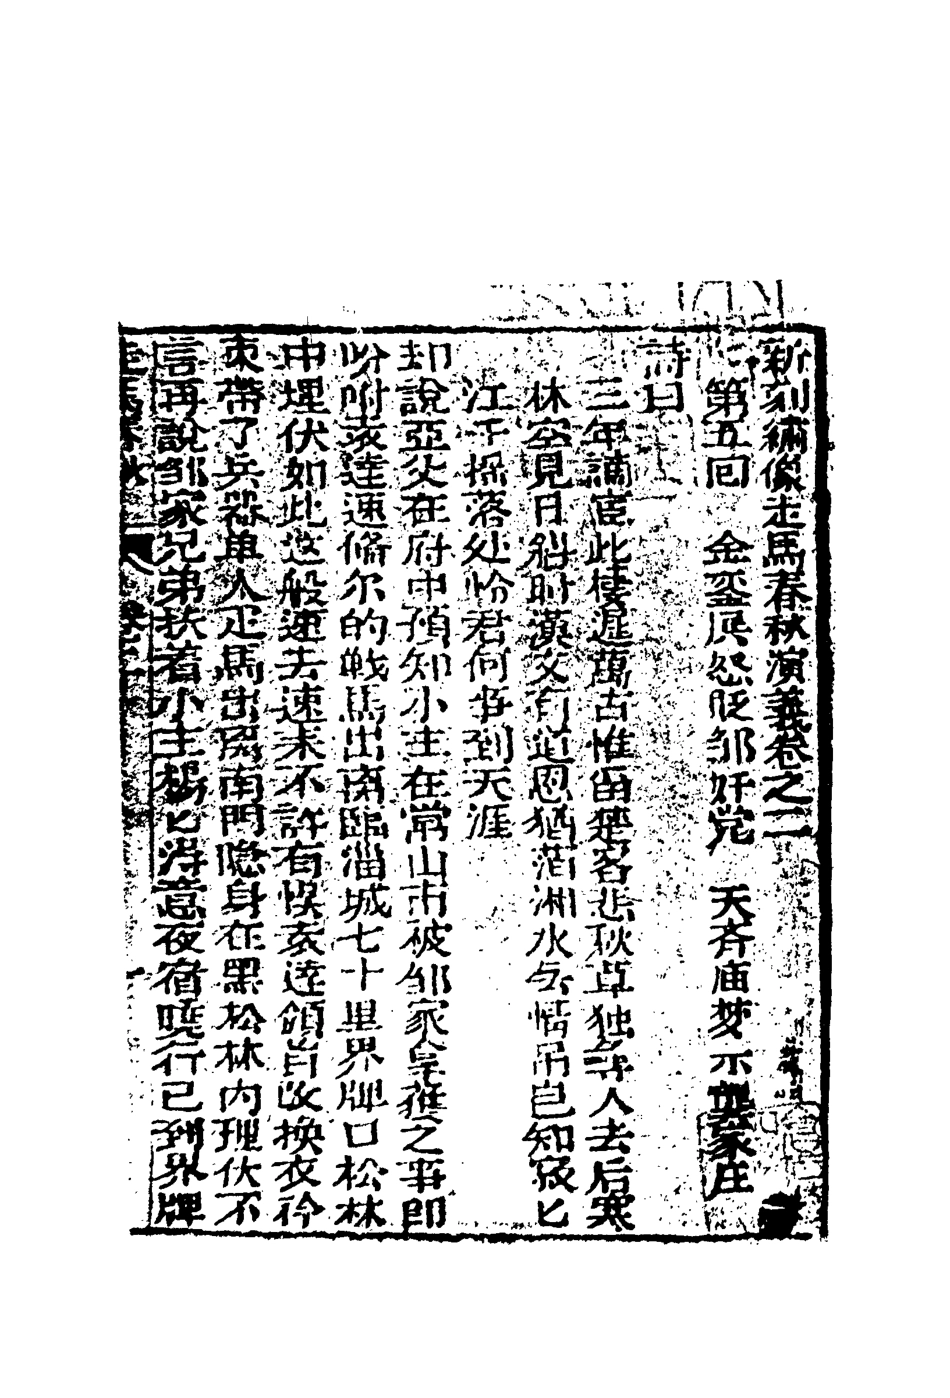 新刻繡像走馬春秋演義卷之二
第五回　金銮展怨貶邹奸党　天斉庙梦示龔家庄
詩曰
三年謫宦此棲遲萬古惟留楚客悲秋草独㝷人去后寒
林空見日斜时漢文有道恩猶薄湘水无情吊豈知寂匕
江干摇落处怜君何事到天涯
却說亞父在府中預知小主在常山市被邹家皇雅之事即
吩咐袁逵速俻尔的戦馬出南臨淄城七十里界牌口松林
中埋伏如此這般速去速来不許有悮袁逵領旨改换衣衿
束帶了兵器单人疋馬出离南門隐身在黑松林内埋伏不
言再說邹家兄弟扶着小主楊匕得意夜宿曉行已到界牌
走馬春秋　卷之二　一